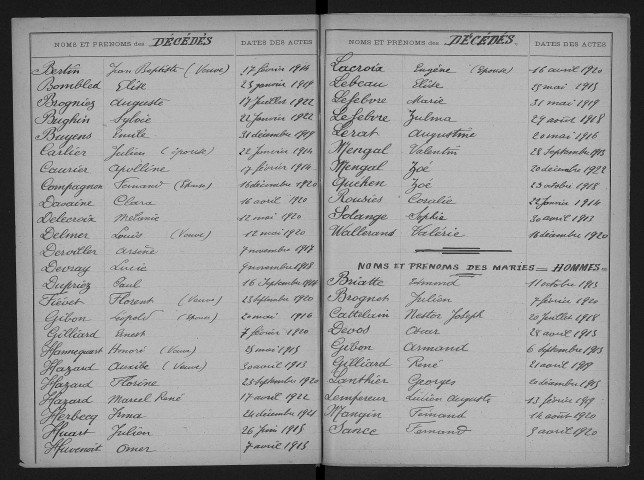 NOMS ET PRÉNOMS des DÉCÉDÉS DATES DES ACTES
Bertin Jean Baptiste (Veuve) 17 février 1914
Bombled Elise 23 janvier 1919
Brogniez Auguste 17 Juillet 1922
Bughin Sylvie 22 janvier 1922
Buyens Emile 31 décembre 1919
Carlier Julien (épouse) 22 Janvier 1914
Caurier Apolline 17 février 1914
Compagnon Fernand (Epouse) 16 décembre 1920
Davaine Clara 16 avril 1920
Delecroix Mélanie 12 mai 1920
Delmer Louis (Veuve) 12 mai 1920
Dervillor Arsène 7 novembre 1917
Devray Lucie 9 novembre 1918
Dupriez Paul 16 Septembre
Fiévet Florent (Veuve) 23 Septembre 1920
Gibon Léopold (Epouse) 20 mai 1916
Gilliard Ernest 7 février 1920
Hannequart Honoré (Veuve) 25 mai 1915
Hazard (Veuve) 30 avril 1913
Hazard Florine 23 Septembre 1920
Hazard Marcel René 17 avril 1922
Herbecq Irma 24 décembre
Huart Julien 26 Juin 1915
Huvenoit Omer 7 avril 1915
NOMS ET PRÉNOMS des DÉCÉDÉS DATES DES ACTES
Lacroix Eugène (Epouse) 16 avril 1920
Lebeau Elise 25 mai 1915
Lefebvre Marie 31 mai 1919
Lefebvre Zulma 29 août 1918
Lerat Augustine 20 mai 1916
Mengal Valentin 28 Septembre 1913
Mengal Zoé 20 décembre 1922
Quehen Zoé 23 octobre 1918
Rousies Coralie 22 février 1914
Solange Sophie 30 avril 1913
Wallerand Valérie 18 décembre 1920
NOMS ET PRENOMS DES MARIES = HOMMES =
Briatte Edmond 11 octobre 1913
Brognet Julien 7 février 1920
Cattelain Nestor Joseph 20 Juillet 1918
Devos Omer 28 avril 1915
Gibon Armand 6 Septembre 1913
Gilliard René 21 avril 1919
Lanthier Georges 20 décembre 1915
Lempereur Lucien Auguste 13 février 1919
Mangin Fernand 14 août 1920
Sance Fernand 3 avril 1920